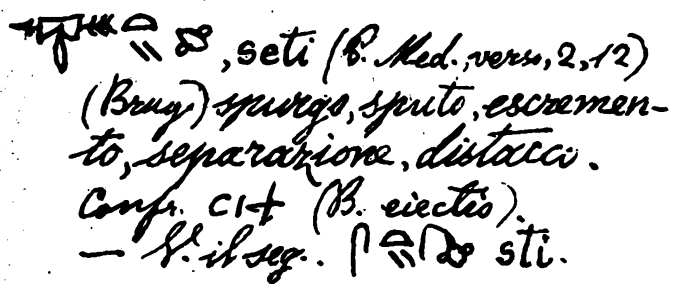 , seti (P. Med. verso, 2, 12)
(Brug.) spurgo, sputo, escremen-
to, separazione, distacco.
Confr. ⲥⲓϯ (B. eiectio).
— V. il seg. sti.